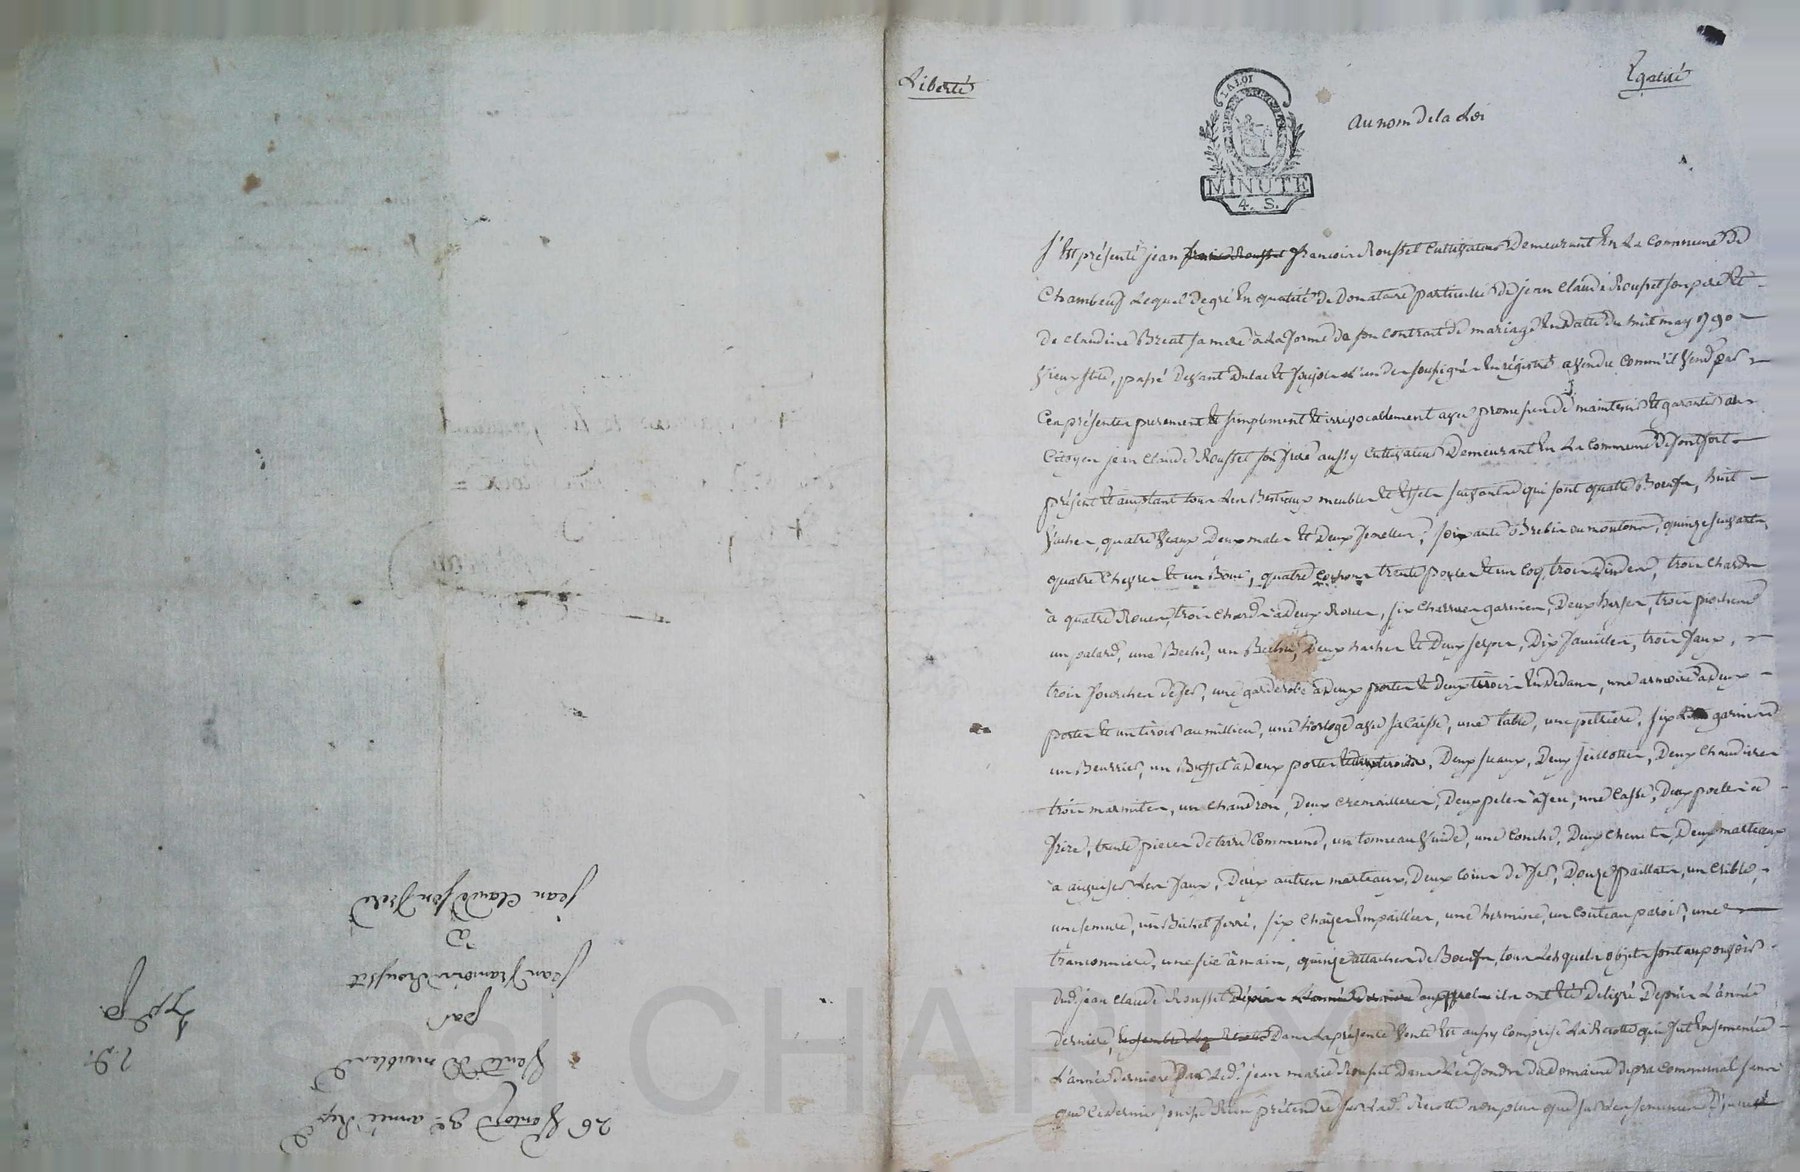 Liberté
Egalité
LA LOI
MINUTE
4. S.
au nom de la Loi
S'Est présenté jean francois Roussel Cultivateur Demeurant En La Commune De
Chambeuf Lequel De gré En qualité De Donataire particulier De jean Claude Roussel son pere Et
De Claudine Breat sa mere à La forme de son Contrat De mariage En Datte du huit may 1790
Vieux stile, passé Devant Dulac Et L'un Des soussignés Enrégistré a Vendu Comm'il Vend par
Ces présentes purement Et simplement Et irrévocablement avec promesses De maintenir Et garantir au
Citoyen jean Claude Roussel son frere aussy Cultivateur Demeurant En La Commune De fontfort
présent Et acceptant tous Les Bestiaux meubles Et Effets suivants qui sont quatre Boeufs, huit
Vaches, quatre Veaux Deux males Et Deux femelles, soixante Brebis ou moutons, quinze suivants,
quatre Chevres Et un Bouc, quatre Cochons trente poules Et un Coq, trois Dindes, trois Chards
à quatre Roues, trois Chards à Deux Roues, six Charrues garnies, Deux herses, trois pioches
un palard, une Beche, un Deux haches Et Deux serpes, Dix faucilles, trois faux,
trois fourches De fer, une garderobe à Deux portes Et Deux tiroirs En Dedans, une armoire à Deux
portes Et un tiroir au millieu, une horloge avec sa Caisse, une table, une petriere, six garnis
un Beurrier, un Buffet à Deux portes Deux seaux, Deux seillottes, Deux Chaudieres
trois marmites, un Chaudron, Deux Cremailleres, Deux peles à feu, une Casse, Deux poeles à
frire, trente pieces De terre Commune, un tonneau Vuide, une Conche, Deux Chenets, Deux marteaux
à aiguiser Les faux, Deux autres marteaux, Deux Coins De fer, Douze paillats, un Crible,
un Bichet ferré, six Chaizes Empaillées, une hermine, un Couteau paroir, une
tranconniere, une scie à main, quinze attaches De Boeufs, tous Lesquels objets sont au pouvoir
Dud. jean Claude Roussel ils ont Eté Delivré Depuis L'année
Derniere, Dans La présente Vente Est aussy Comprise La Récotte qui fut Ensemencée
L'année Derniere par Led. jean marie Roussel Dans Les fonds du Domaine De pra Communal sans
que Ce Dernier puisse Rien prétendre sur Lad. Récotte non plus que sur Les semences
26 Ventose 3e année Rep
Vente De meubles
par
jean francois Roussel
à
jean Claude son frere